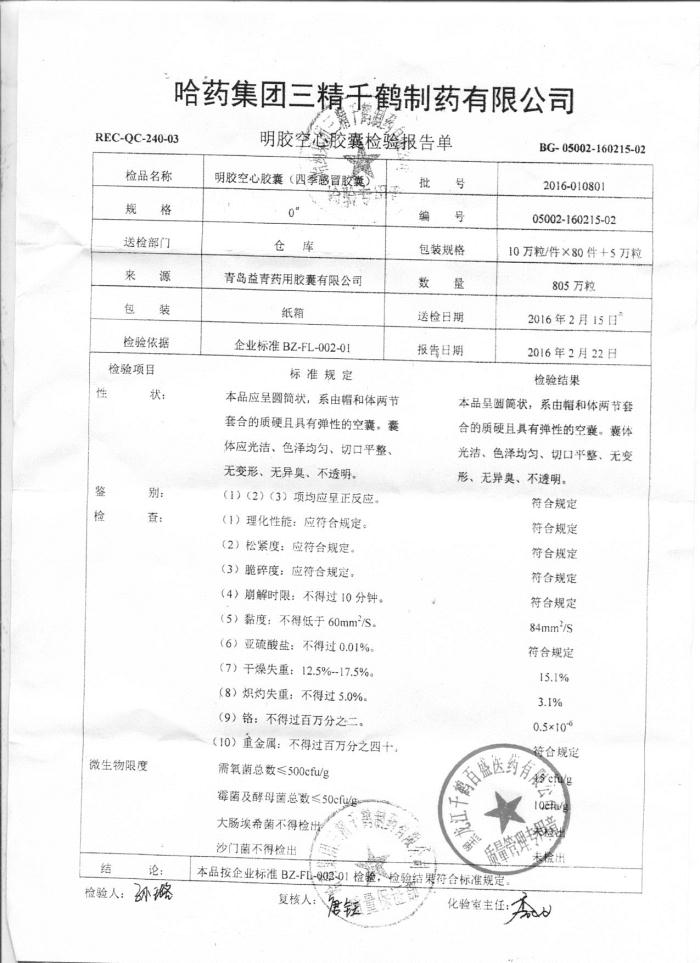 哈药集团三精千鹤制药有限公司
REC-QC-240-03 明胶空心胶囊检验报告单 BG- 05002-160215-02
检品名称 明胶空心胶囊（四季感冒胶囊） 批 号 2016-010801
规 格 0# 编 号 05002-160215-02
送检部门 仓 库 包装规格 10 万粒/件×80 件＋5 万粒
来 源 青岛益青药用胶囊有限公司 数 量 805 万粒
包 装 纸箱 送检日期 2016 年 2 月 15 日
检验依据 企业标准 BZ-FL-002-01 报告日期 2016 年 2 月 22 日
检验项目 标 准 规 定 检验结果
性 状： 本品应呈圆筒状，系由帽和体两节 本品呈圆筒状，系由帽和体两节套
套合的质硬且具有弹性的空囊。囊 合的质硬且具有弹性的空囊。囊体
体应光洁、色泽均匀、切口平整、 光洁、色泽均匀、切口平整、无变
无变形、无异臭、不透明。 形、无异臭、不透明。
鉴 别： （1）（2）（3）项均应呈正反应。 符合规定
检 查： （1）理化性能：应符合规定。 符合规定
（2）松紧度：应符合规定。 符合规定
（3）脆碎度：应符合规定。 符合规定
（4）崩解时限：不得过 10 分钟。 符合规定
（5）黏度：不得低于 60mm²/S。 84mm²/S
（6）亚硫酸盐：不得过 0.01%。 符合规定
（7）干燥失重：12.5%--17.5%。 15.1%
（8）炽灼失重：不得过 5.0%。 3.1%
（9）铬：不得过百万分之二。 0.5×10⁻⁶
（10）重金属：不得过百万分之四十。 符合规定
微生物限度 需氧菌总数≤500cfu/g 45 cfu/g
霉菌及酵母菌总数≤50cfu/g 10cfu/g
大肠埃希菌不得检出 未检出
沙门菌不得检出 未检出
结 论： 本品按企业标准 BZ-FL-002-01 检验，检验结果符合标准规定。
检验人： 复核人： 化验室主任：
黑龙江千鹤百盛医药有限公司
质量管理专用章